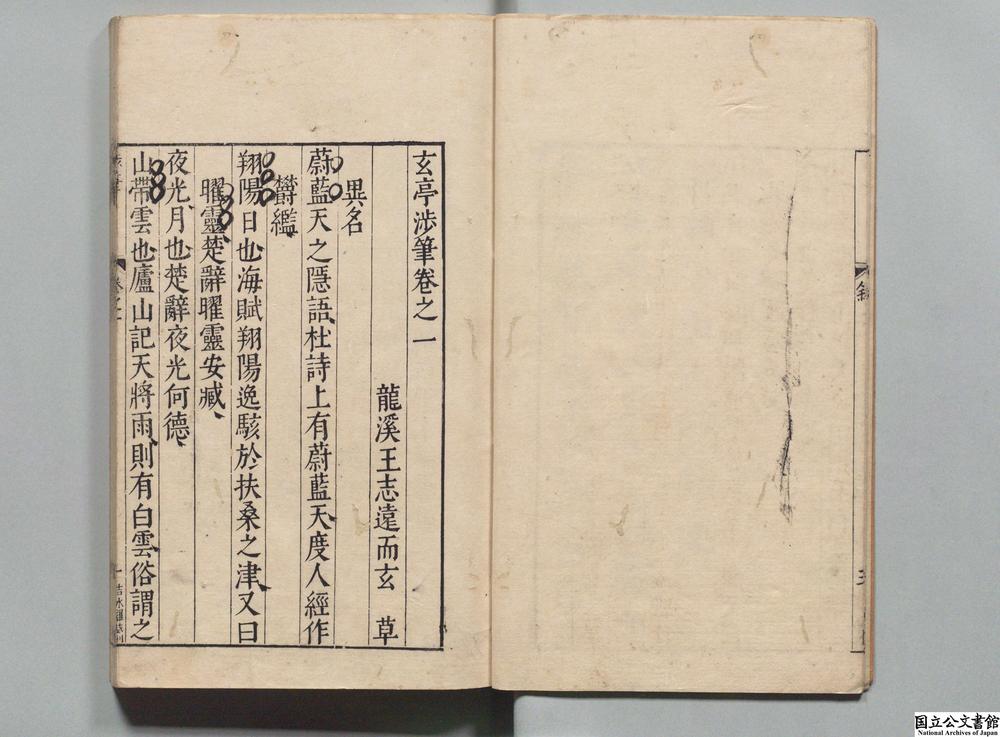 玄亭渉筆卷之一
龍溪王志遠而玄　草
異名
蔚藍天之隱語杜詩上有蔚藍天度人經作
欝䍀
翔陽日也海賦翔陽逸駭於扶桑之津又曰
曜靈楚辭曜靈安臧
夜光月也楚辭夜光何德
山帶雲也廬山記天將雨則有白雲俗謂之
国立公文書館
National Archives of Japan